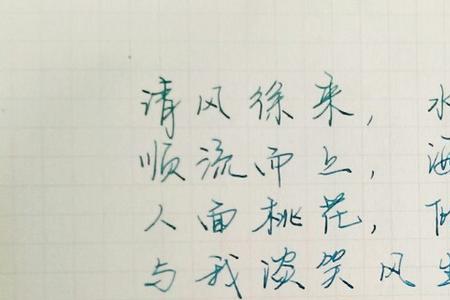 清风徐来，水
顺流而上，酒
人面桃花，
与我谈笑风生